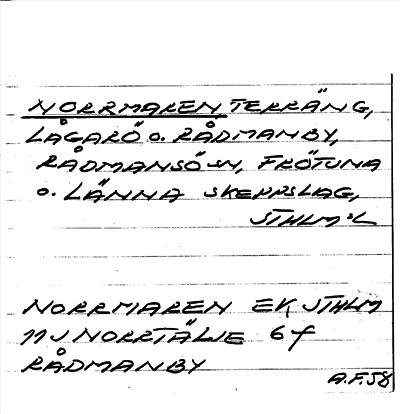 NORRMAREN, TERRÄNG,
LÅGARÖ o. RÅDMANBY,
RÅDMANSÖ SN, FRÖTUNA
o. LÄNNA SKEPPSLAG,
STHLM:S L
NORRMAREN EK, STHLM
11 J NORRTÄLJE 6 f
RÅDMANBY
A.F. 58